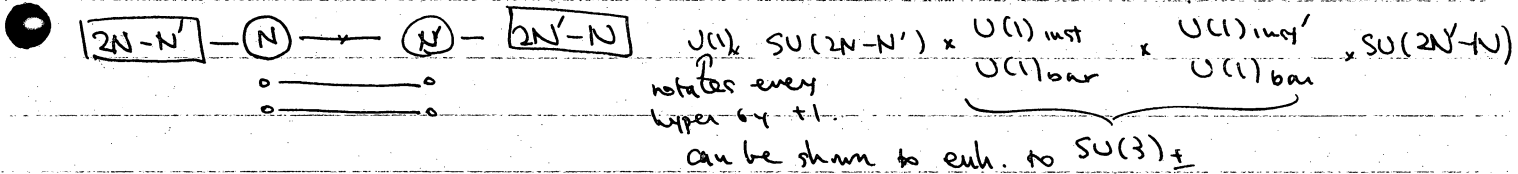 [2N-N'] - (N) —×— (N') - [2N'-N] U(1) × SU(2N-N') × U(1) inst / U(1) bar × U(1) inst' / U(1) bar × SU(2N'-N)
rotates every
hyper by +1.
can be shown to enh. to SU(3)±